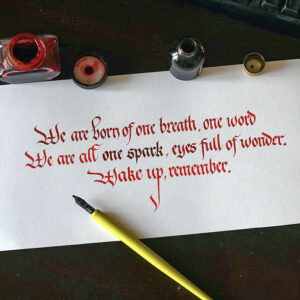 We are born of one breath, one word
We are all one spark, eyes full of wonder.
Wake up, remember.